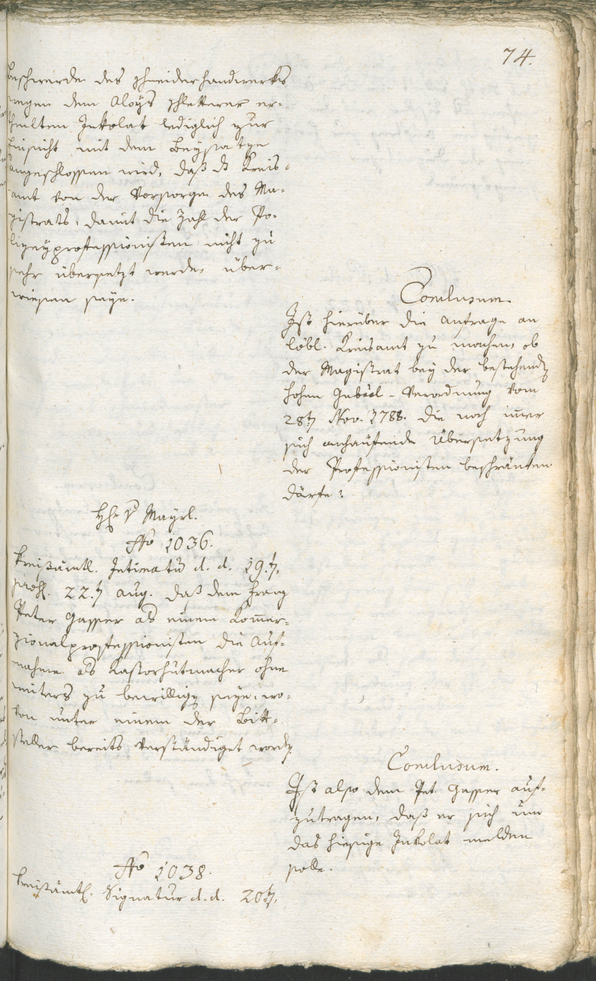 74.
beschwerde des schneiderhandwerks
wegen dem Aloys schletterer er-
theilten Inkolat lediglich zur
Einsicht mit dem Beysatze
angeschlossen wird, daß d Kreis-
amt von der Vorsorge des Ma-
gistrats, damit die Zahl der Po-
lizeyprofessionisten nicht zu
sehr übersetzt werde, über-
wiesen seye.
Conclusum.
Ist hierüber die anfrage an
löbl. Kreisamt zu machen, ob
der Magistrat bey der bestehend
hohen Gubial-Verordnung vom
28t Nov. 1788. die noch imer
sich anhäufende Übersetzung
der Professionisten beschränken
därfe?
Hr v Mayrl.
No 1036.
Kreisämtl. Intimatum d. d. 19.t,
prs. 22.t Aug. daß dem Franz
Peter Gasser als einem Komer-
zionalprofessionisten die Auf-
nahme als Kastorhutmacher ohne
weiters zu bewilligen seye, wo-
von unter einem der Bitt-
steller bereits verständiget worden
Conclusum.
Ist also dem Pet Gasser auf-
zutragen, daß er sich um
das hiesige Inkolat melden
solle.
No 1038.
Kreisämtl. Signatur d. d. 20t,